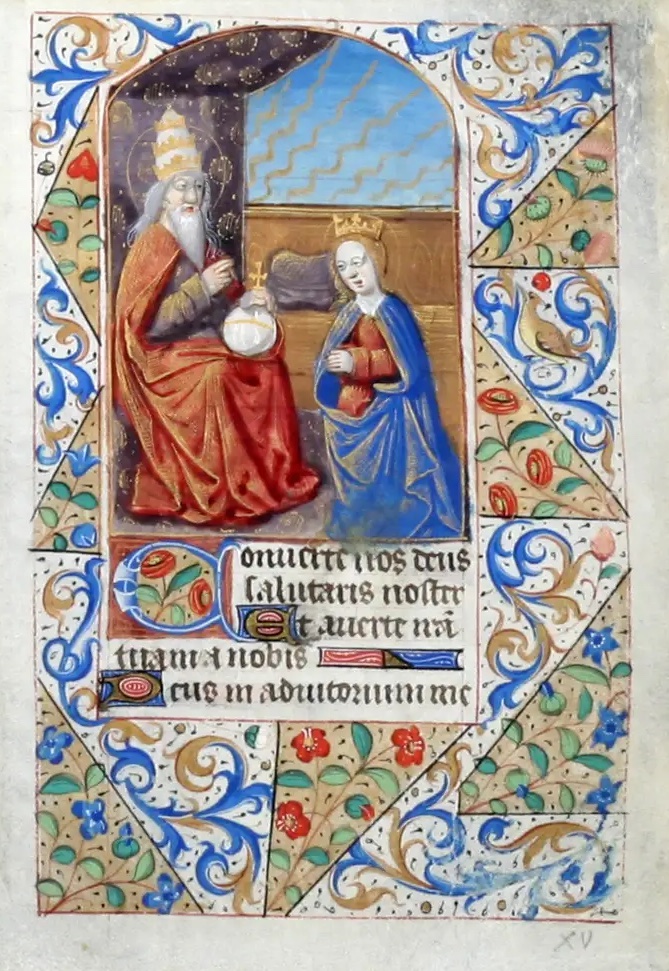 Conuerte nos deus
salutaris noster
Et auerte irā
tuam a nobis
Deus in adiutorium me
XV